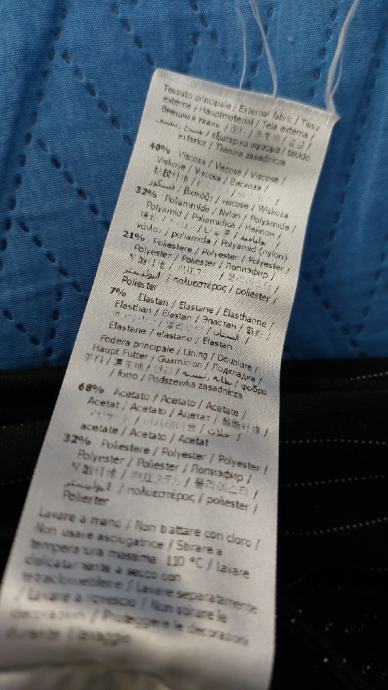 Tessuto principale / External fabric / Tissu
externe / Hauptmaterial / Tela externa /
Внешняя ткань /
εξωτερικό ύφασμα / tecido
exterior / Tkanina zasadnicza
40% Viscosa / Viscose / Viscose /
Viskose / Viscosa / Вискоза /
/ Βισκόζη / viscose / Wiskoza
32% Poliammide / Nylon / Polyamide /
Polyamid / Poliamidica / Нейлон /
νάιλον / poliamida / Polyamid (nylon)
21% Poliestere / Polyester / Polyester /
Polyester / Poliester / Полиэфир /
/ πολυεστέρας / poliester /
Poliester
7% Elastan / Elastane / Elasthanne /
Elasthan / Elastan / Эластан /
Elastane / elastano / Elastan
Fodera principale / Lining / Doublure /
Haupt Futter / Guarnicion / Подкладка /
/ φόδρα
/ forro / Podszewka zasadnicza
68% Acetato / Acetato / Acetate /
Acetat / Acetato / Ацетат /
acetate / Acetato / Acetat
32% Poliestere / Polyester / Polyester /
Polyester / Poliester / Полиэфир /
/ πολυεστέρας / poliester /
Poliester
Lavare a mano / Non trattare con cloro /
Non usare asciugatrice / Stirare a
temperatura massima 110 °C / Lavare
delicatamente a secco con
tetracloroetilene / Lavare separatamente
/ Lavare a rovescio / Non stirare le
decorazioni / Proteggere le decorazioni
durante il lavaggio